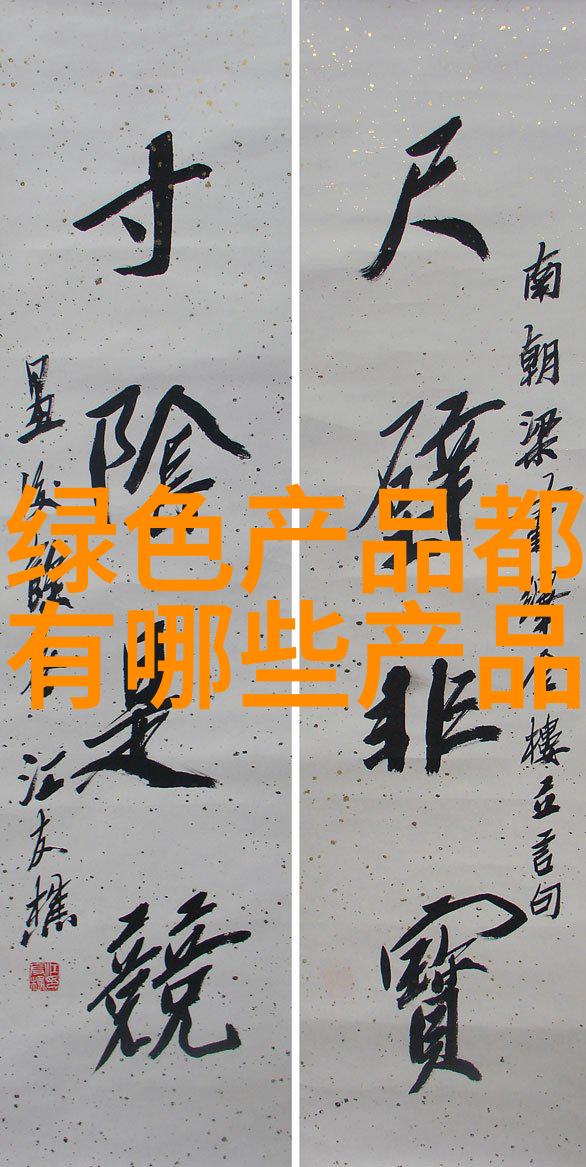 绿色产品都
有哪些产品
尺璧非寶
寸陰是競
南朝梁
樓立言句
汪友樵